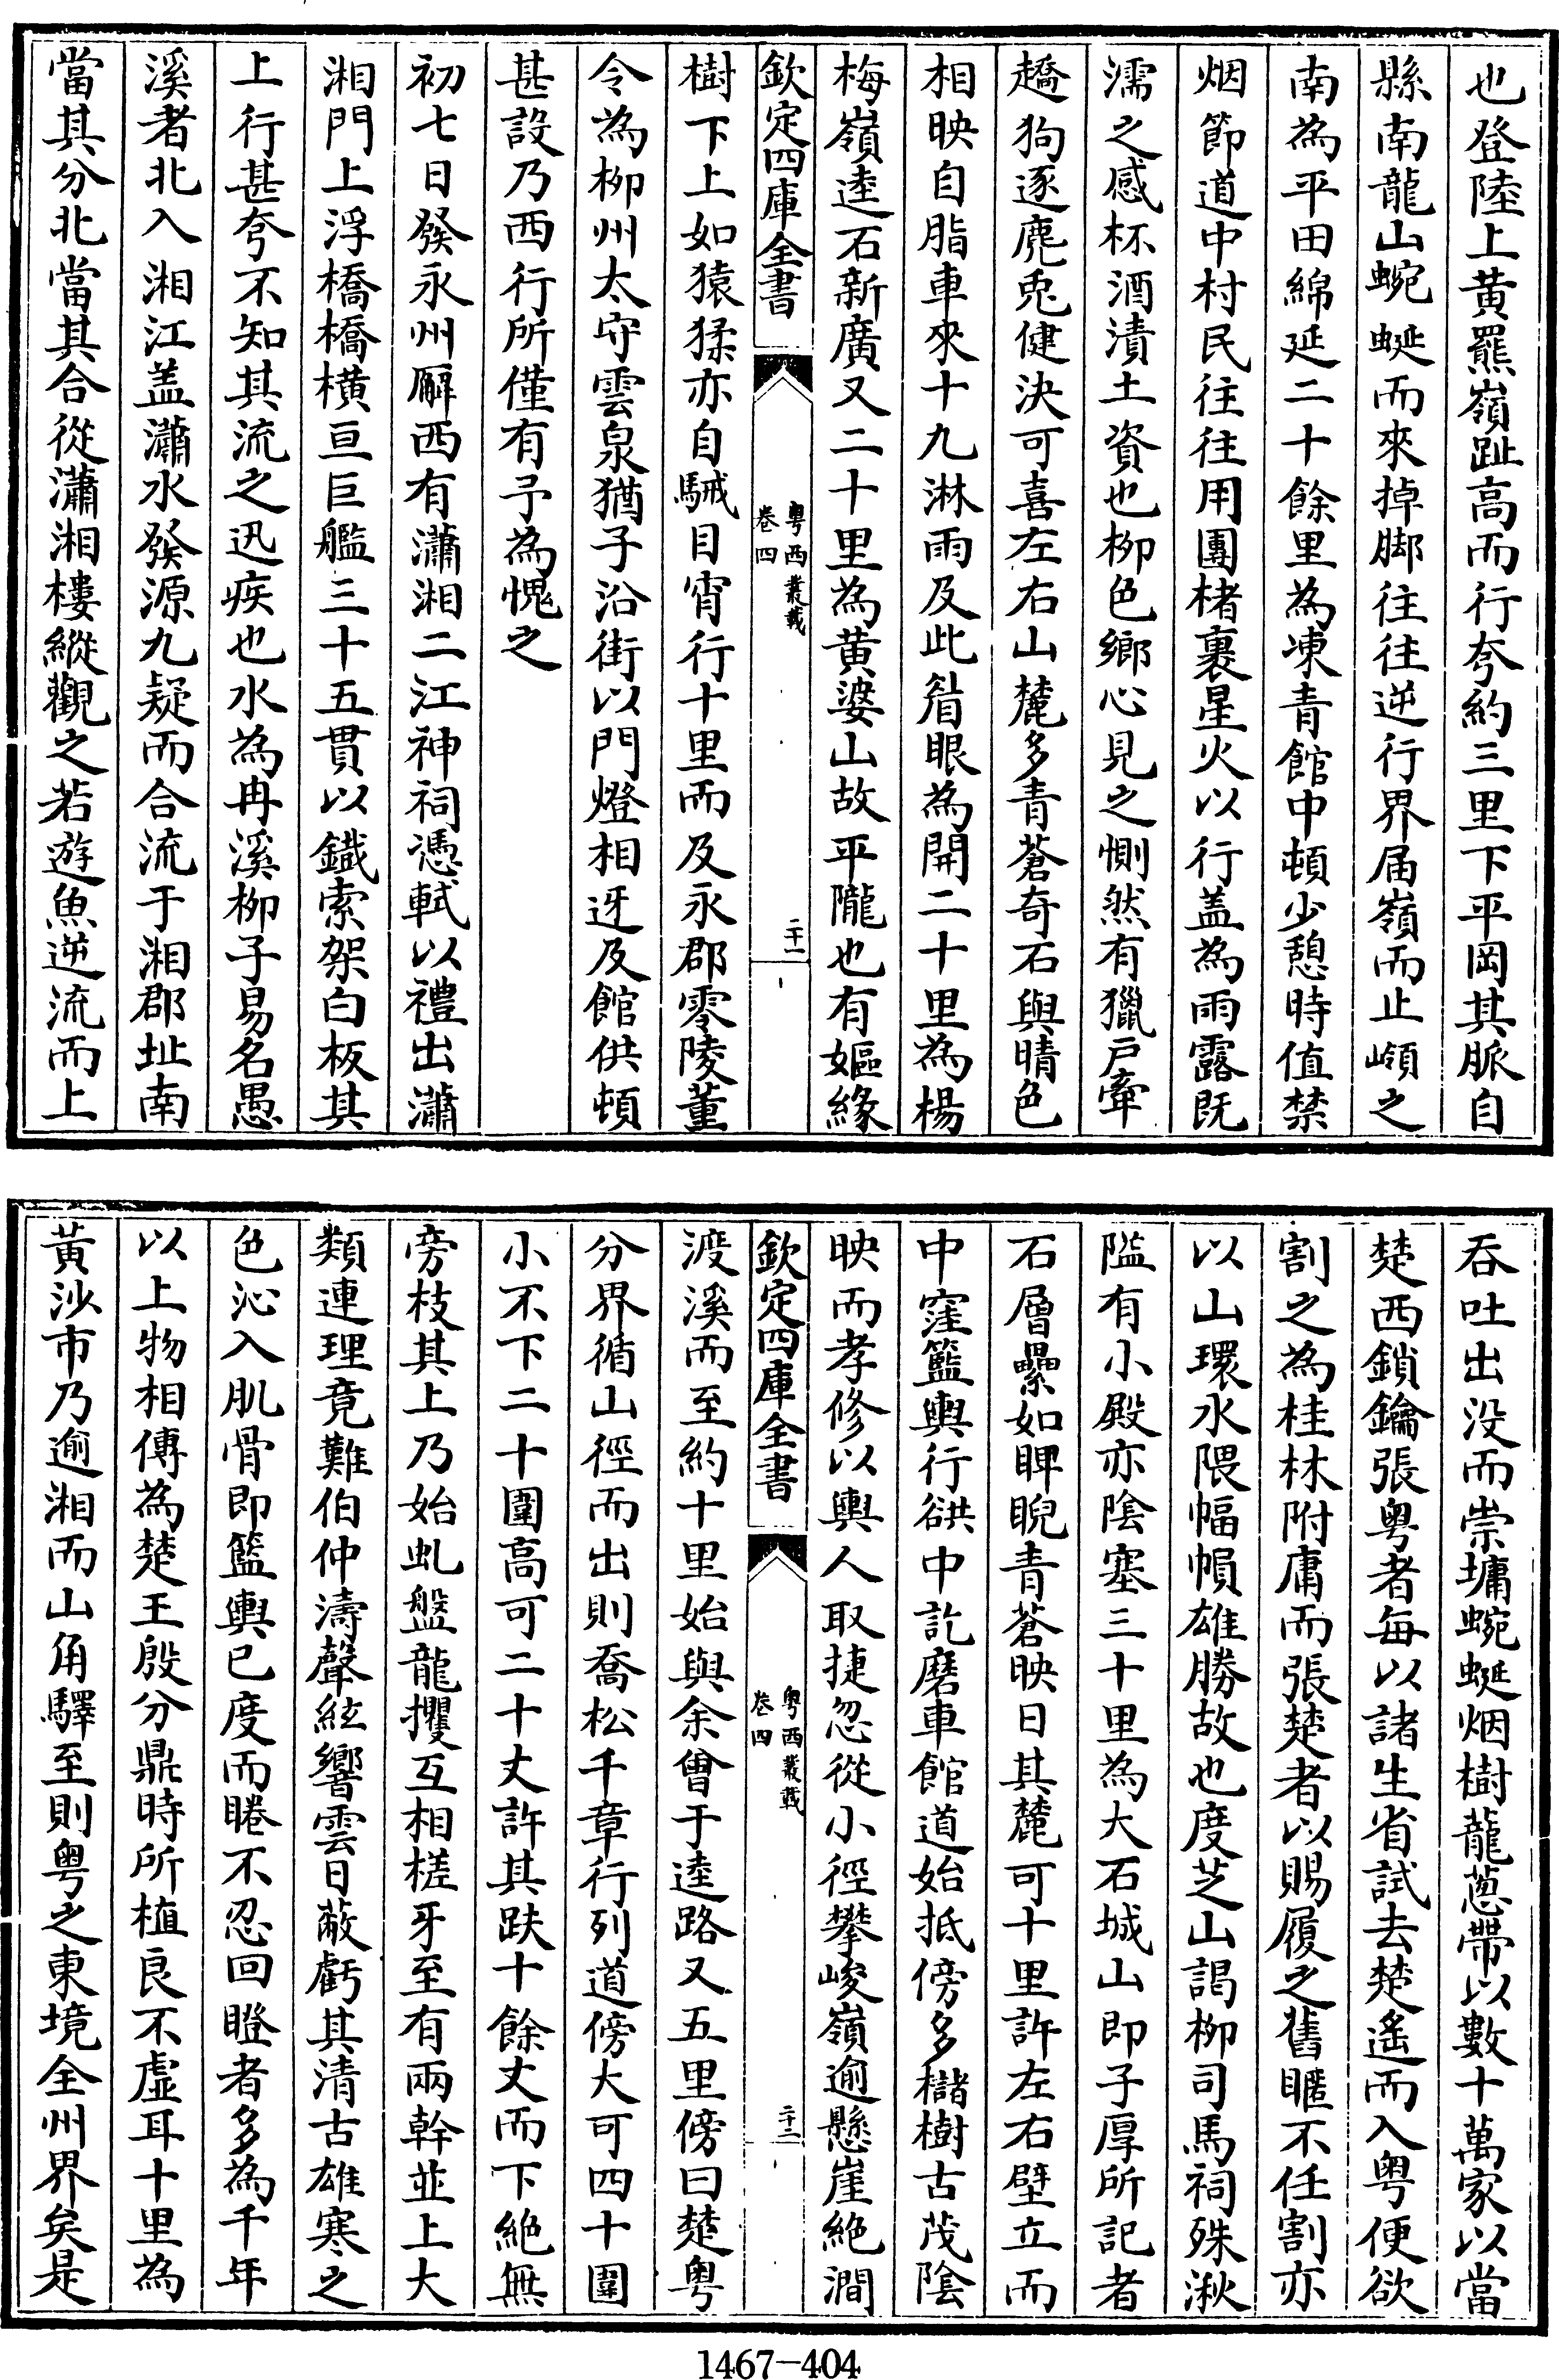 也登陸上黄羆嶺趾高而行夸約三里下平岡其脈自
縣南龍山蜿蜒而來掉脚往往逆行界届嶺而止嶺之
南為平田綿延二十餘里為凍青館中頓少憩時值禁
烟節道中村民往往用團楮裹星火以行盖為雨露既
濡之感杯酒漬土資也柳色鄉心見之惻然有獵戸牽
趫狗逐麂兎健決可喜左右山麓多青蒼奇石與晴色
相映自脂車來十九淋雨及此眢眼為開二十里為楊
梅嶺逵石新廣又二十里為黄婆山故平隴也有嫗緣
欽定四庫全書
粤西叢載
卷四
二十一
樹下上如猿猱亦自駴目宵行十里而及永郡零陵董
令為柳州太守雲泉猶子沿街以門燈相迓及館供頓
甚設乃西行所僅有予為愧之
初七日發永州廨西有瀟湘二江神祠憑軾以禮出瀟
湘門上浮橋橋横亘巨艦三十五貫以鐡索架白板其
上行甚夸不知其流之迅疾也水為冉溪柳子易名愚
溪者北入湘江盖瀟水發源九疑而合流于湘郡址南
當其分北當其合從瀟湘樓縱觀之若遊魚逆流而上
吞吐出没而崇墉蜿蜒烟樹蘢蔥帶以數十萬家以當
楚西鎖鑰張粤者每以諸生省試去楚遙而入粤便欲
割之為桂林附庸而張楚者以賜履之舊暱不任割亦
以山環水隈幅幀雄勝故也度芝山謁柳司馬祠殊湫
隘有小殿亦陰塞三十里為大石城山即子厚所記者
石層纍如睥睨青蒼映日其麓可十里許左右壁立而
中窪籃輿行谼中訖磨車館道始抵傍多櫧樹古茂陰
映而孝修以輿人取捷忽從小徑攀峻嶺逾懸崖絶澗
欽定四庫全書
粤西叢載
卷四
二十二
渡溪而至約十里始與余㑹于逵路又五里傍曰楚粤
分界循山徑而出則喬松千章行列道傍大可四十圍
小不下二十圍高可二十丈許其趺十餘丈而下絶無
旁枝其上乃始虬盤龍攫互相槎牙至有兩幹並上大
類連理竟難伯仲濤聲紘響雲日蔽虧其清古雄寒之
色沁入肌骨即籃輿已度而睠不忍回瞪者多為千年
以上物相傳為楚王殷分鼎時所植良不虚耳十里為
黄沙市乃逾湘而山角驛至則粤之東境全州界矣是
1467-404